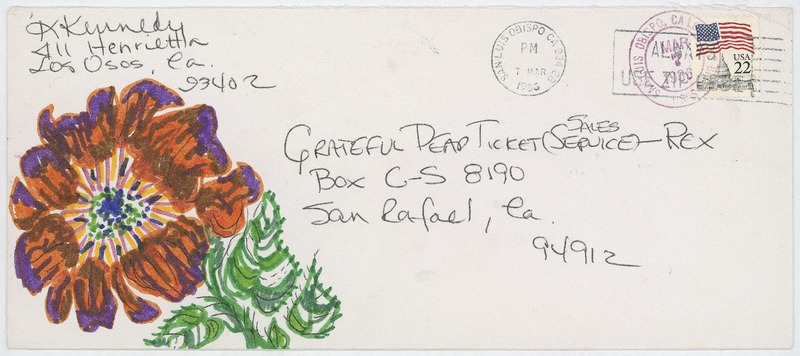 Kennedy
411 Henrietta
Los Osos, Ca.
93402
SAN LUIS OBISPO CA
PM
7 MAR
1986
SAN LUIS OBISPO, CAL
MAR
7
1986
ALWAYS
USE ZIP
USA
22
SALES
GRATEFUL DEAD TICKET (SERVICE) - REX
BOX C-S 8190
San Rafael, Ca.
94912